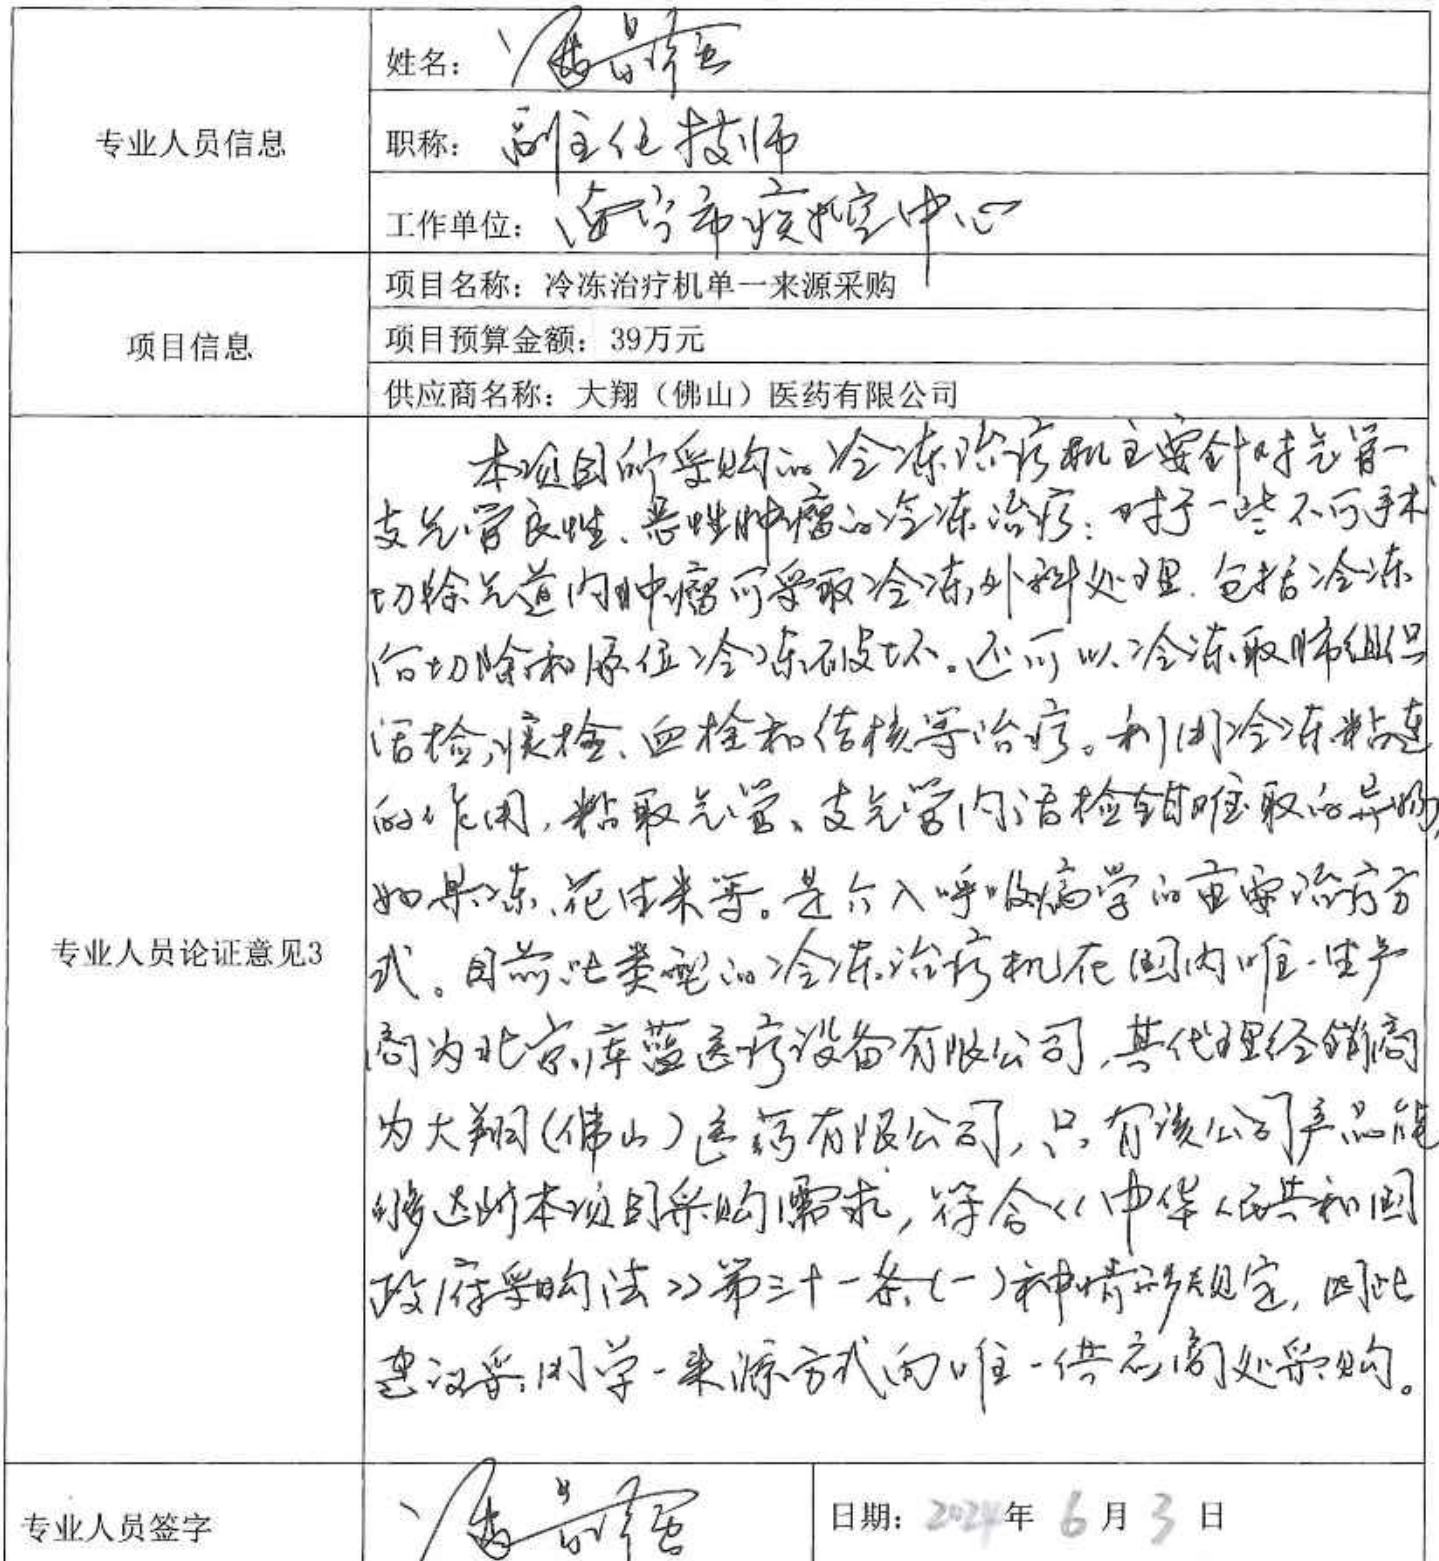 专业人员信息
姓名：
职称：副主任技师
工作单位：海宁市疾控中心
项目信息
项目名称：冷冻治疗机单一来源采购
项目预算金额：39万元
供应商名称：大翔（佛山）医药有限公司
专业人员论证意见3
本项目所采购的冷冻治疗机主要针对气管一
支气管良性、恶性肿瘤的冷冻治疗：对于一些不可手术
切除气道内肿瘤可采取冷冻外科处理.包括冷冻
后切除和原位冷冻破坏。还可以冷冻取肺组织
活检,痰栓、血栓和结核等治疗。利用冷冻粘连
的作用,粘取气管、支气管内活检钳难取的异物,
如果冻、花生米等。是介入呼吸病学的重要治疗方
式。目前此类型的冷冻治疗机在国内唯一生产
商为北京库蓝医疗设备有限公司,其代理经销商
为大翔(佛山)医药有限公司,只有该公司产品能
够达到本项目采购需求,符合《中华人民共和国
政府采购法》第三十一条(一)种情形规定,因此
建议采用单一来源方式向唯一供应商处采购。
专业人员签字
日期：2024年6月3日